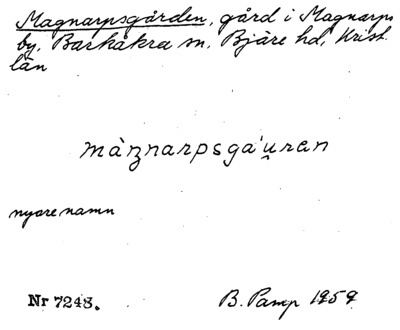 Magnarpsgården, gård i Magnarps
by, Barkåkra sn, Bjäre hd, Krist.
län
màŋnarpsgáu̯ran
nyare namn
Nr 7248.
B. Pamp 1959